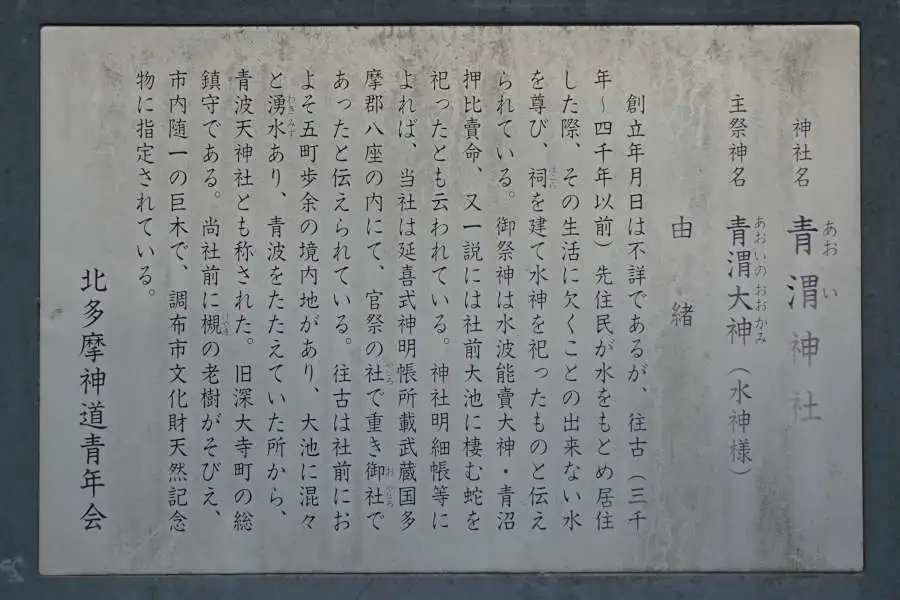 神社名　青渭神社
主祭神名　青渭大神（水神様）
由緒
創立年月日は不詳であるが、往古（三千
年～四千年以前）先住民が水をもとめ居住
した際、その生活に欠くことの出来ない水
を尊び、祠を建て水神を祀ったものと伝え
られている。御祭神は水波能賣大神・青沼
押比賣命、又一説には社前大池に棲む蛇を
祀ったとも云われている。神社明細帳等に
よれば、当社は延喜式神明帳所載武蔵国多
摩郡八座の内にて、官祭の社で重き御社で
あったと伝えられている。往古は社前にお
よそ五町歩余の境内地があり、大池に混々
と湧水あり、青波をたたえていた所から、
青波天神社とも称された。旧深大寺町の総
鎮守である。尚社前に槻の老樹がそびえ、
市内随一の巨木で、調布市文化財天然記念
物に指定されている。
北多摩神道青年会